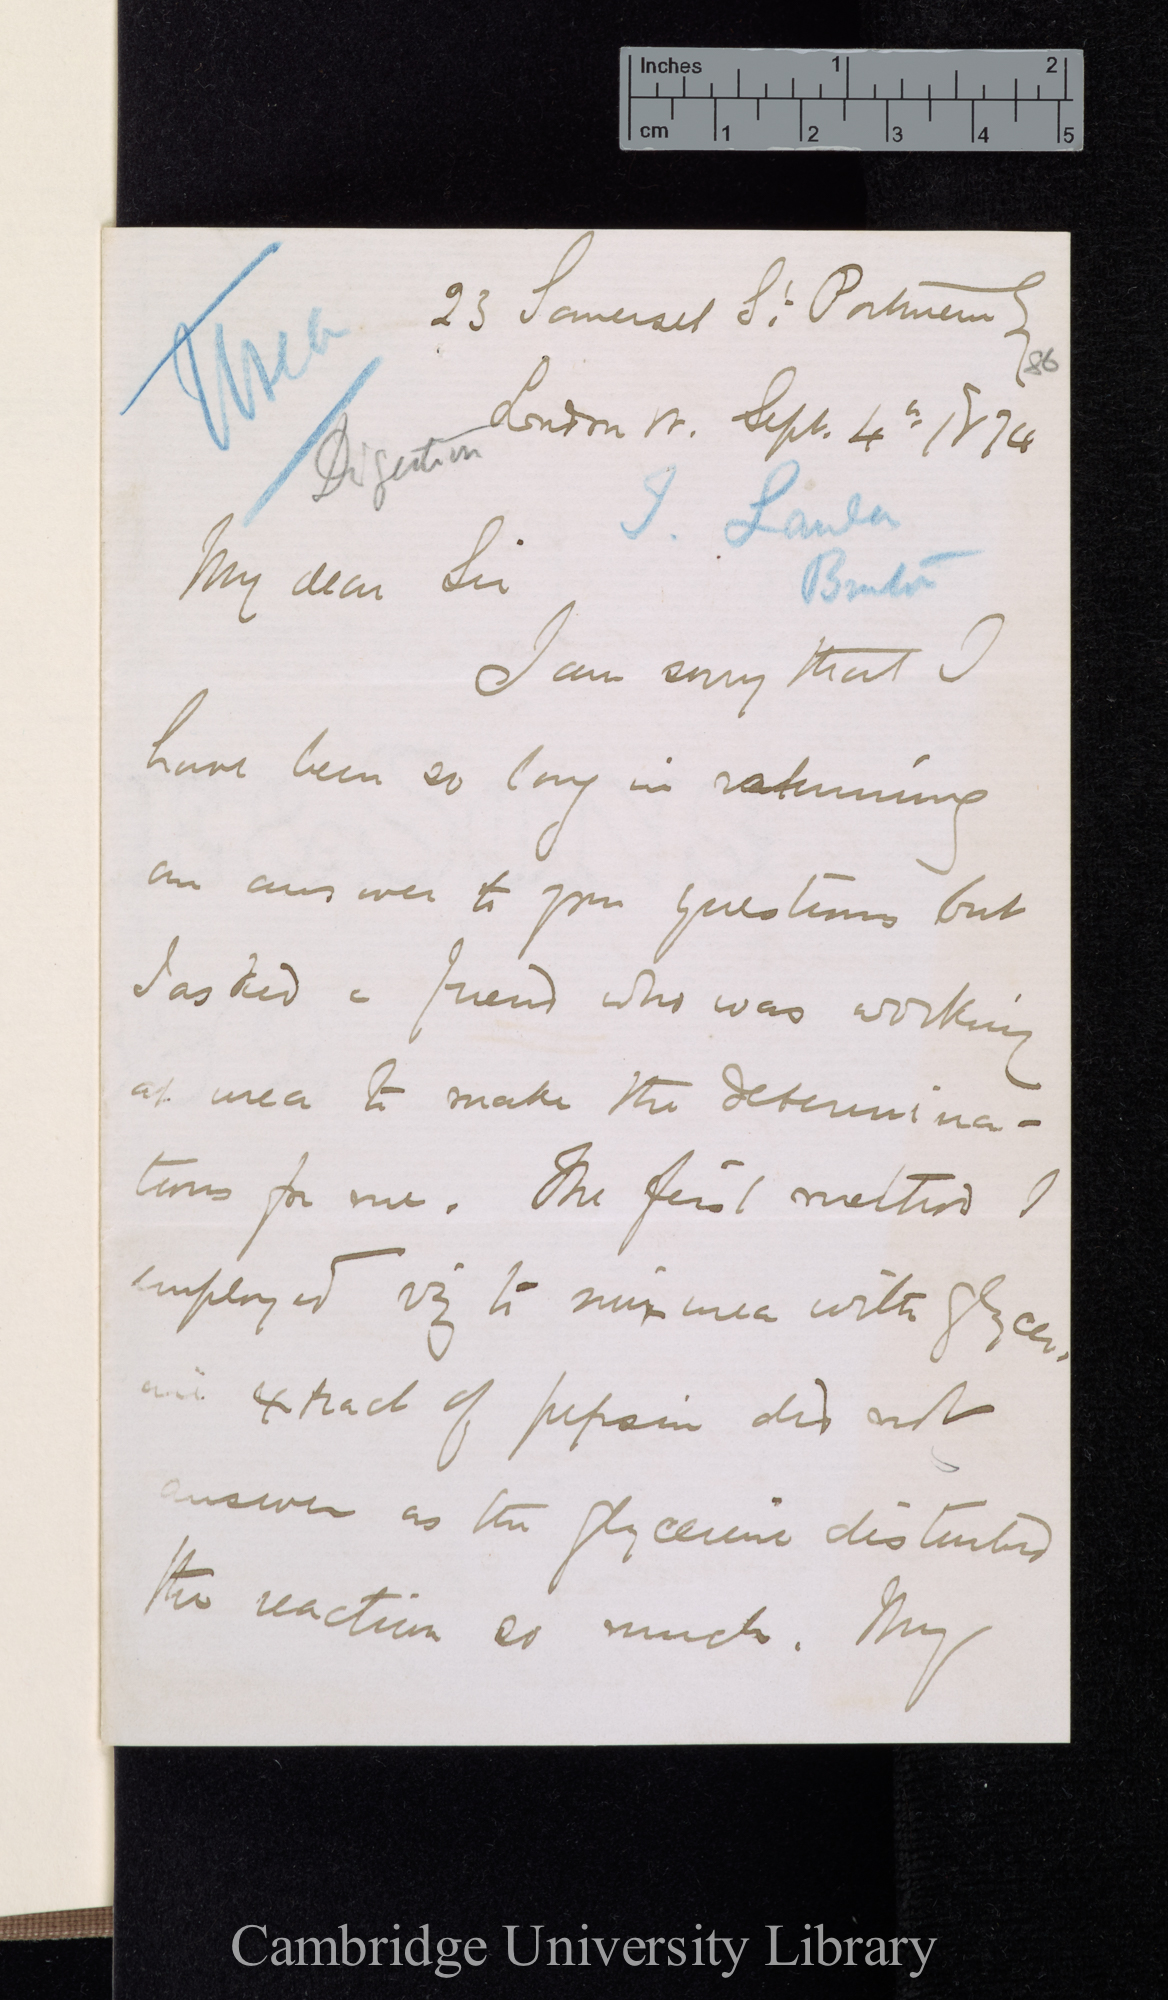 Inches 1 2
cm 1 2 3 4 5
23 Somerset St. Portman Sq
86
Urea
London W. Sept. 4th 1874
Digestion
T. Lauder
Brunton
My dear Sir
I am sorry that I
have been so long in returning
an answer to your questions but
I asked a friend who was working
at urea to make the determina-
tions for me. The first method I
employed viz to mix urea with glycer-
ine extract of pepsin did not
answer as the glycerine disturbed
the reaction so much. My
Cambridge University Library